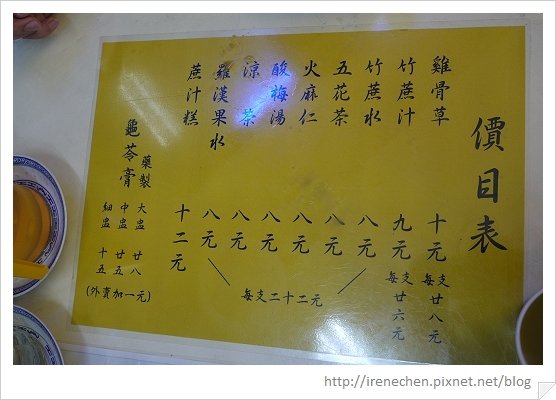 價目表
雞骨草 十元 每支廿八元
竹蔗汁 九元 每支廿六元
竹蔗水 八元
五花茶 八元
火麻仁 八元
酸梅湯 八元
涼茶 八元
羅漢果水 八元
每支二十二元
蔗汁糕 十二元
藥製
龜苓膏
大盅 廿八
中盅 廿五
細盅 十五
(外賣加一元)
http://irenechen.pixnet.net/blog